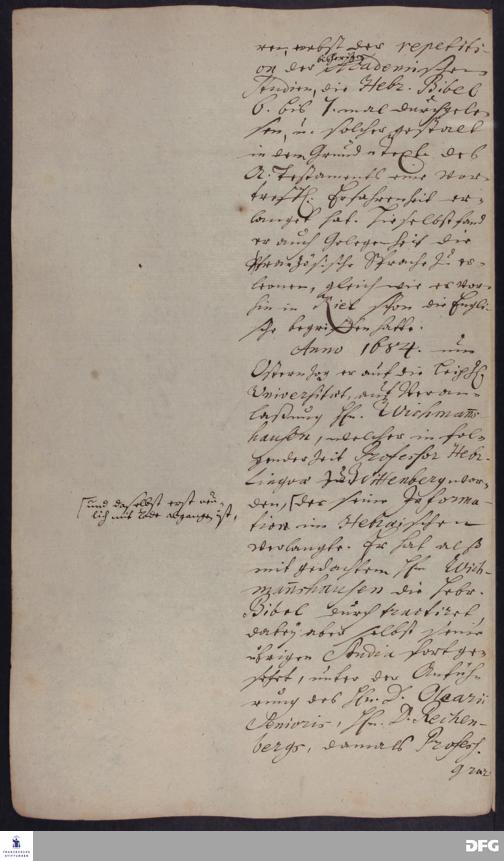 ren, nebst der repetiti-
on der bisherigen Academischen
Studien, die Hebr. Bibel
6. bis 7. mal durchgele-
sen, u. solcher gestalt
in dem Grund-Texte des
A. Testaments eine vor-
treffl. Erfahrenheit er-
langet hat. Hieselbst fand
er auch Gelegenheit die
Frantzösische Sprache zu er-
lernen, gleich wie er vor-
hin in Kiel schon die Engli-
sche begriffen hatte.
Anno 1684. um
Ostern zog er auf die Leipz.
Universität, auf Veran-
lassung Hn. Wichmanns
hausen, welcher in fol-
gender Zeit Professor Hebr.
Linguae zu Wittenberg wor-
[und daselbst erst neu-
lich mit Tode abgangen ist,
den, [der seine Informa-
tion im Hebräischen
verlangte. Er hat also
mit gedachtem Hn. Wich-
mannshausen die Hebr.
Bibel durchtractiret,
dabey aber selbst seine
übrigen Studia fortge-
setzt, unter der Anfüh-
rung des Hn. D. Olearii
Senioris, Hn. D. Rechen-
bergs, damals Profess.
grae
FRANCKESCHE
STIFTUNGEN
DFG